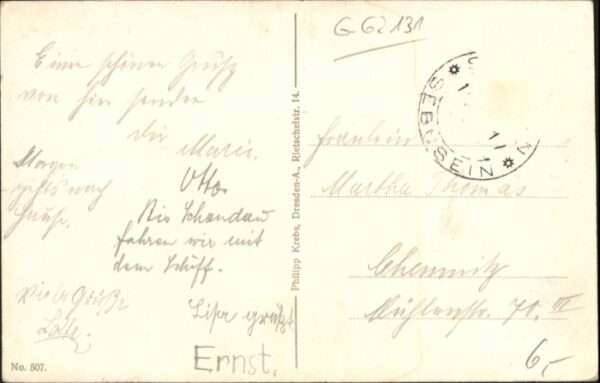 G G2131
Einen schönen Gruß
von hier sendet
die Marie.
Otto.
Morgen
geht's nach
Hause.
Bis Schandau
fahren wir mit
dem Schiff.
Viele Grüße
Lisa grüßt
Ernst.
No. 507.
Philipp Krebs, Dresden-A., Rietschelstr. 14.
SEBUSEIN
Fräulein
Martha Thomas
Chemnitz
Mühlenstr. 70. III
6,-